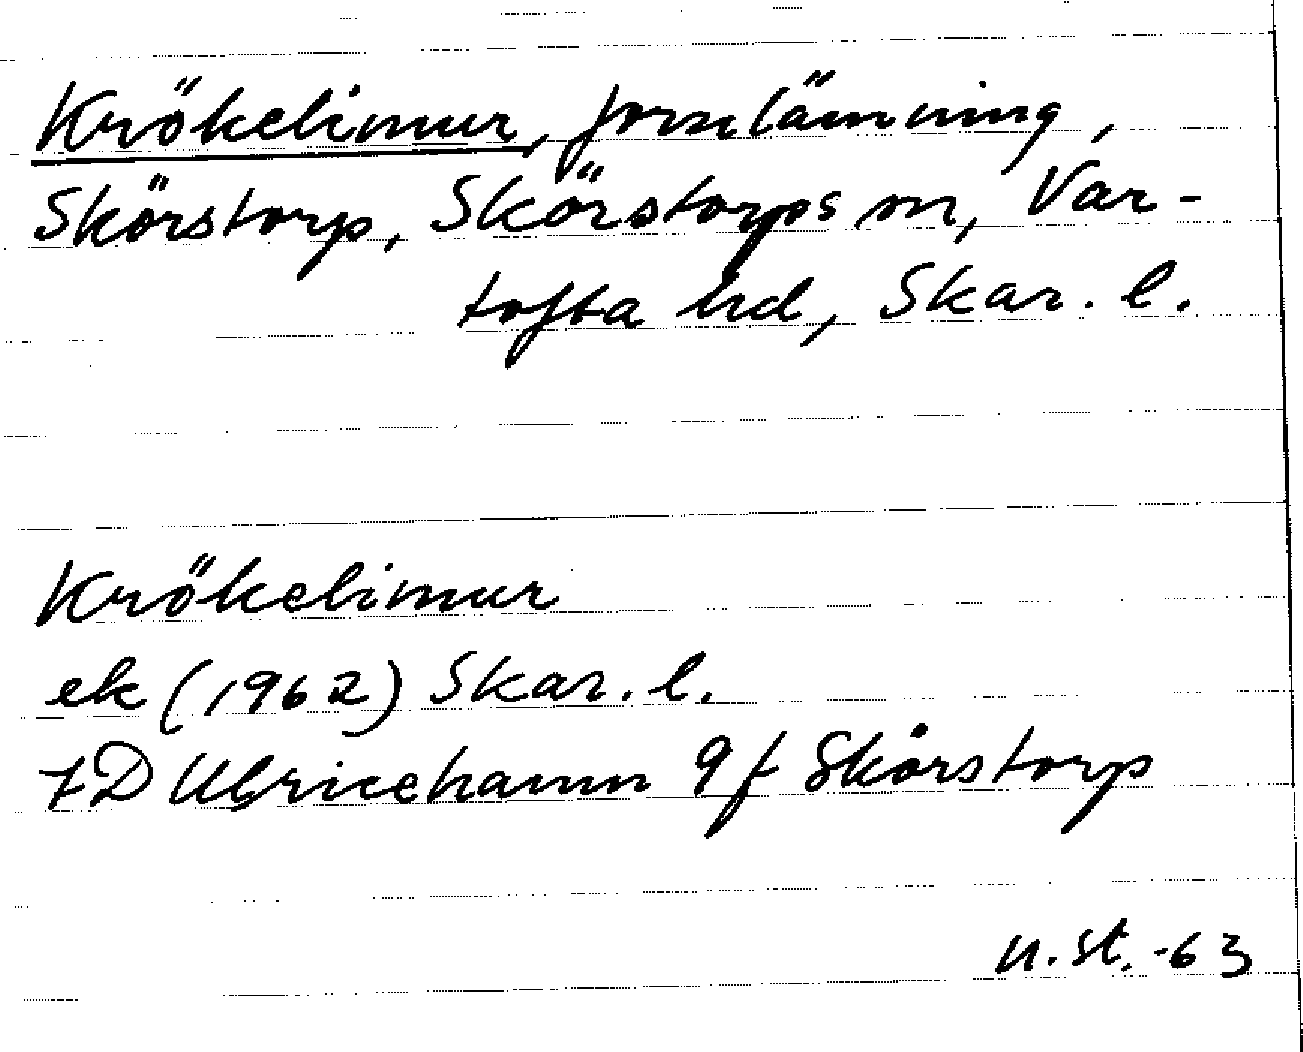 Krökelimur, fornlämning,
Skörstorp, Skörstorps sn, Var-
tofta hd, Skar. l.
Krökelimur
ek (1962) Skar. l.
7D Ulricehamn 9f Skörstorp
U.St. -63